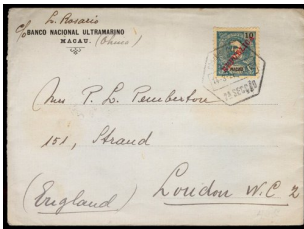 L. Rosario
c/o BANCO NACIONAL ULTRAMARINO
MACAU. (China)
10
Mrs P. L. Pemberton
151, Strand
London W.C. 2
(England)